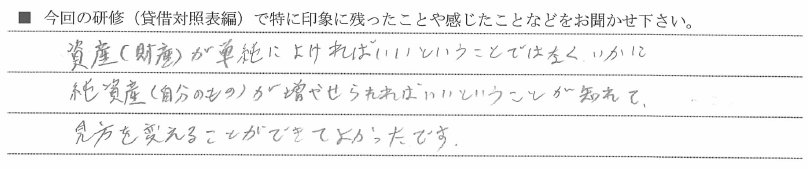 ■ 今回の研修（貸借対照表編）で特に印象に残ったことや感じたことなどをお聞かせ下さい。
資産(財産)が単純によければいいということではなく、いかに
純資産(自分のもの)が増やせられればいいということが知れて、
見方を変えることができてよかったです。